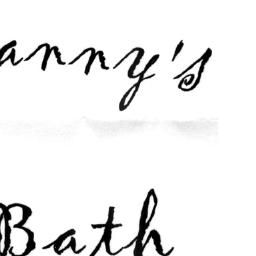 anny's
Bath